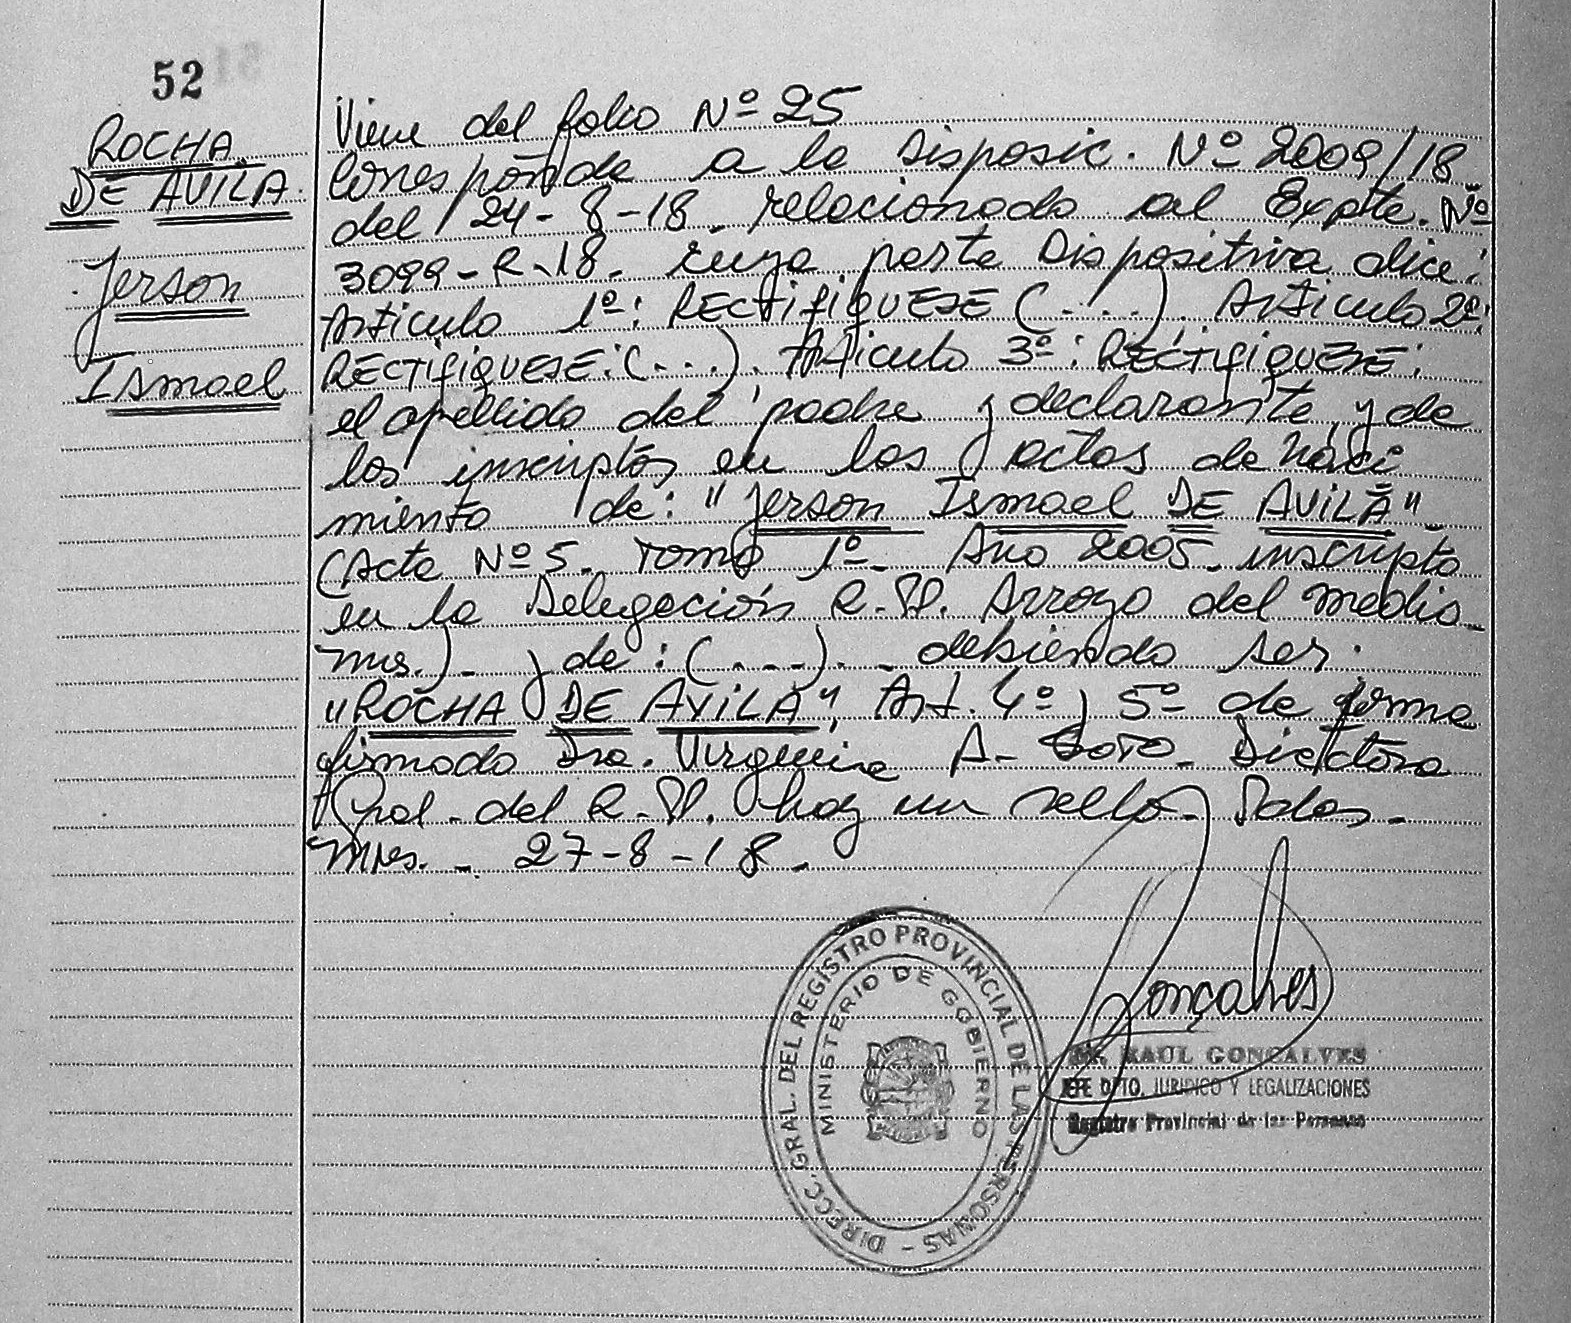 52
ROCHA
DE AVILA.
Jerson
Ismael
Viene del folio Nº 25
Corresponde a la Disposic. Nº 2009/18
del 24-8-18. relacionado al Expte. Nº
3099-R-18. cuya parte Dispositiva dice:
Articulo 1º: RECTIFIQUESE (...). Articulo 2º:
RECTIFIQUESE: (...). Articulo 3º: RECTIFIQUESE:
el apellido del padre y declarante, y de
los inscriptos en las actas de naci
miento de: "Jerson Ismael DE AVILA"-
(Acta Nº 5. Tomo 1º- Año 2005. inscripto
en la Delegación R.P. Arroyo del Medio-
Mis.)- y de: (....). - debiendo ser.
"ROCHA DE AVILA", Art. 4º y 5º de forma
firmado Dra. Virginia A- SOTO- Directora
Gral. del R.P. hay un sello. Pdas.
Mnes. - 27-8-18.
Gonçalves
DR. RAUL GONCALVES
JEFE DPTO. JURIDICO Y LEGALIZACIONES
Registro Provincial de las Personas
DIRECC. GRAL. DEL REGISTRO PROVINCIAL DE LAS PERSONAS -
MINISTERIO DE GOBIERNO